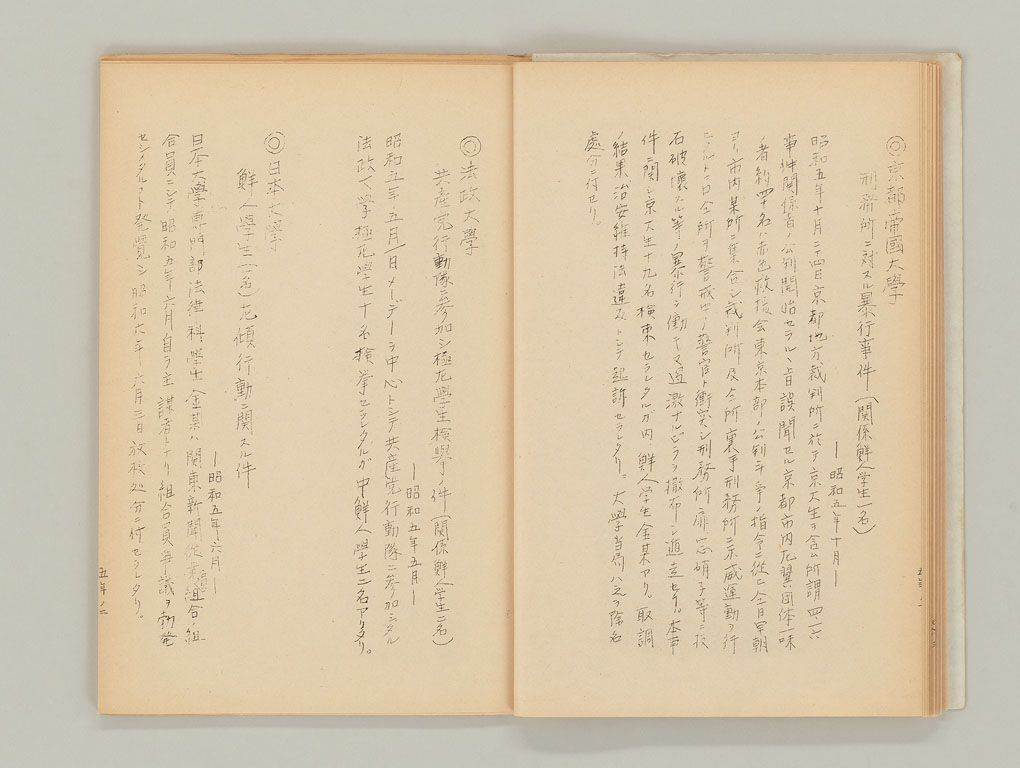 ◎京都帝國大學
刑務所ニ対スル暴行事件（関係鮮人学生一名）
―昭和五年十月―
昭和五年十月二十四日京都地方裁判所ニ於テ京大生ヲ含ム所謂四・一六
事件関係者ノ公判開始セラルル旨誤聞セル京都市内左翼団体一味
ノ者約四十名ハ赤色救援会東京本部ノ公判斗争ノ指令ニ従ヒ仝日早朝
ヨリ市内某所ニ集合シ裁判所及仝所裏手刑務所ニ示威運動ヲ行
ヒタルトコロ仝所ヲ警戒中ノ警官ト衝突シ刑務所扉窓硝子等ニ投
石破壊スル等ノ暴行ヲ働キ又過激ナルビラヲ撒布シ遁走セリ。本事
件ニ関シ京大生十九名検束セラレタルガ内、鮮人学生金某アリ。取調
ノ結果治安維持法違反トシテ起訴セラレタリ。大學当局ハ之ヲ除名
處分ニ付セリ。
◎法政大學
共産党行動隊ニ参加シ極左學生検擧ノ件（関係鮮人学生二名）
―昭和五年五月―
昭和五年五月一日メーデーヲ中心トシテ共産党行動隊ニ参加シタル
法政大学極左学生十名検挙セラレタルガ中鮮人學生二名アリタリ。
◎日本大学
鮮人學生（一名）左傾行動ニ関スル件
―昭和五年六月―
日本大學専門部法律科學生金某ハ関東新聞従業員組合ノ組
合員ニシテ昭和五年六月自ラ主謀者トナリ組合員争議ヲ勃発
セシメタルコト発覚シ昭和六年六月三日放校処分ニ付セラレタリ。